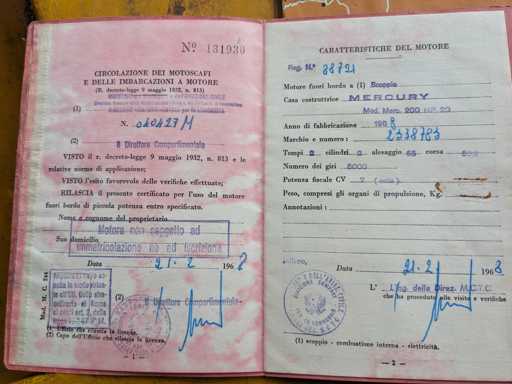 Nº 131930
CIRCOLAZIONE DEI MOTOSCAFI
E DELLE IMBARCAZIONI A MOTORE
(R. decreto-legge 9 maggio 1932, n. 813)
(1)
N. 040427M
(2) Il Direttore Compartimentale
VISTO il r. decreto-legge 9 maggio 1932, n. 813 e le
relative norme di applicazione;
VISTO l'esito favorevole delle verifiche effettuate;
RILASCIA il presente certificato per l'uso del motore
fuori bordo di piccola potenza entro specificato.
Nome e cognome del proprietario
Motore non soggetto ad
Suo domicilio
immatricolazione né ad iscrizione
Data 21.2 1968
(2) Il Direttore Compartimentale
Mod. M. C. 744
(1) Ufficio che rilascia la licenza.
(2) Capo dell'Ufficio che rilascia la licenza.
— 1 —
CARATTERISTICHE DEL MOTORE
Reg. N.º 88721
Motore fuori bordo a (1) Scoppio
Casa costruttrice MERCURY
Mod. Merc. 200 HP 20
Anno di fabbricazione 1968
Marchio e numero: 2338783
Tempi 2 cilindri 2 alesaggio 65 corsa
Numero dei giri 5000
Potenza fiscale CV 7
Peso, compresi gli organi di propulsione, Kg.
Annotazioni:
Data 21.2 1968
L' Ing. della Direz. M.C.T.C.
che ha proceduto alle visite e verifiche
(1) scoppio - combustione interna - elettricità.
— 2 —